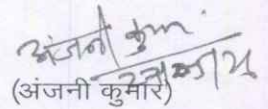 अंजनी कुमार
(अंजनी कुमार)